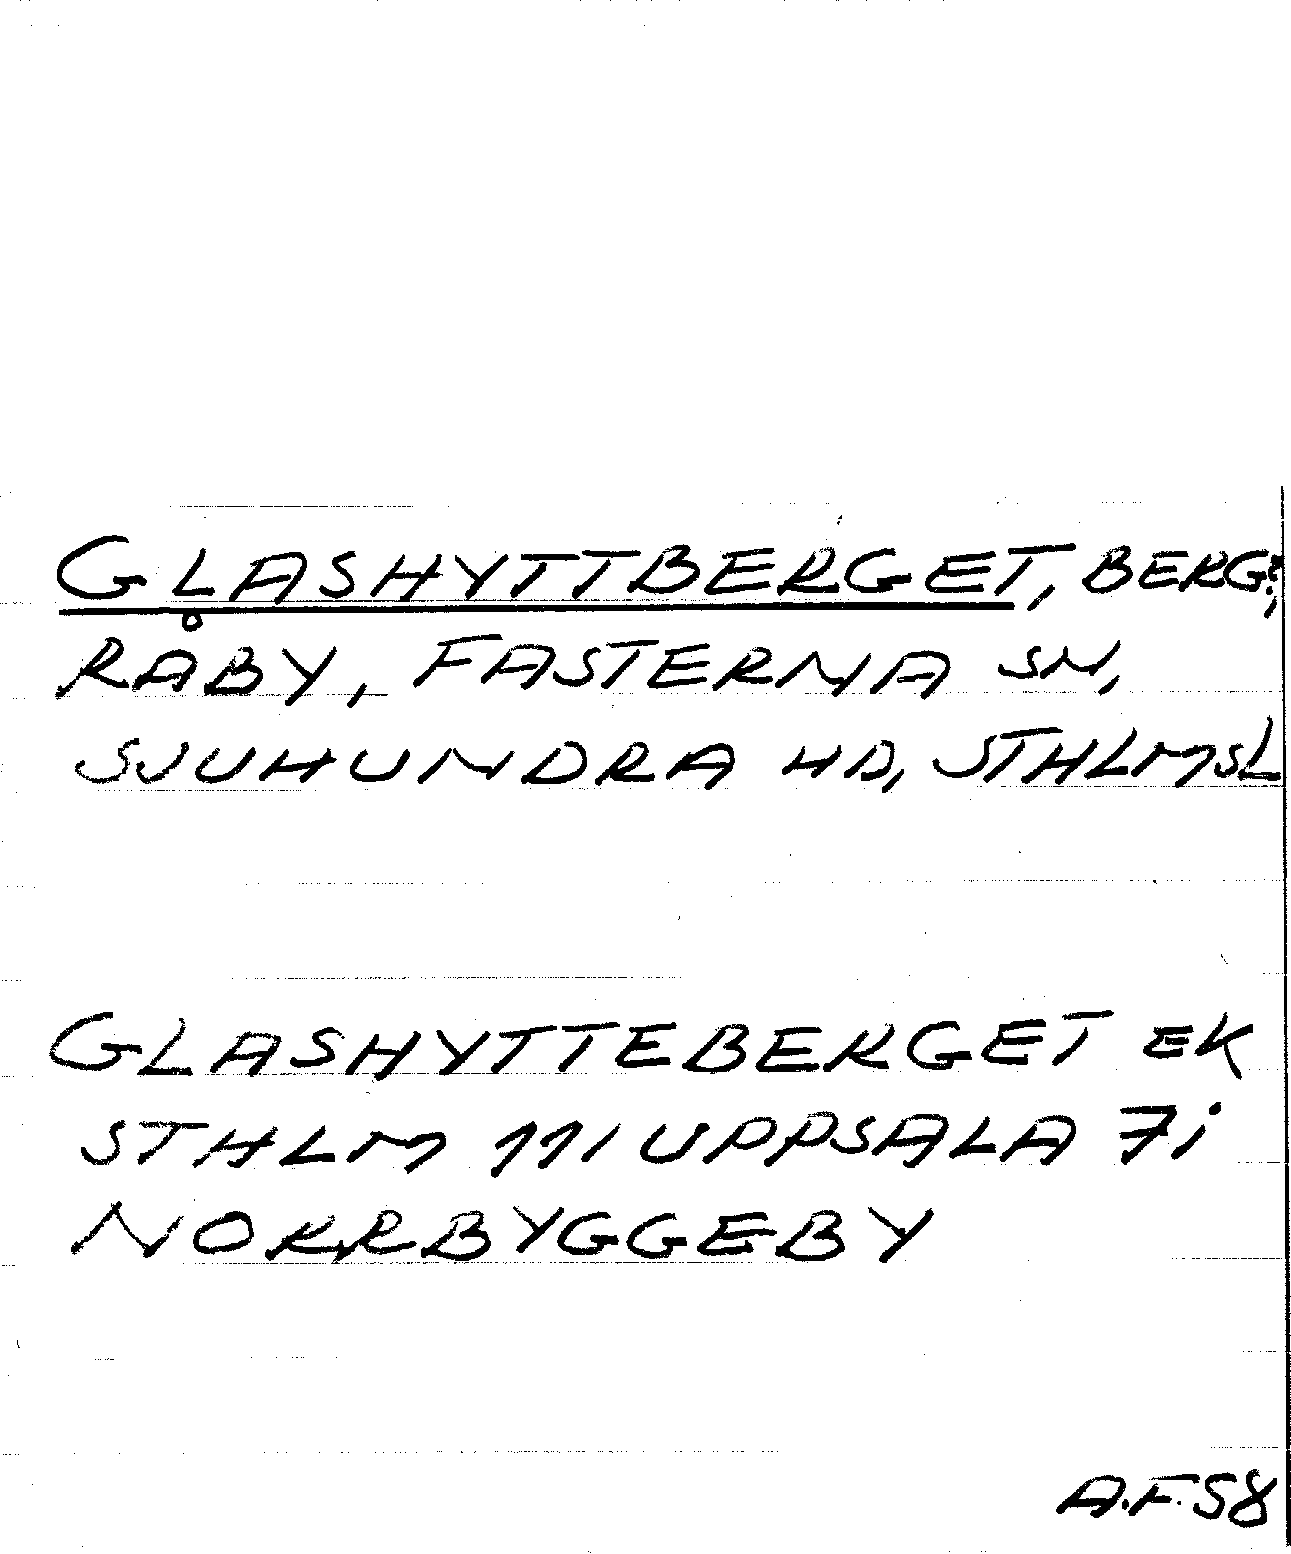 GLASHYTTBERGET, BERG?,
RÅBY, FASTERNA SN,
SJUHUNDRA HD, STHLMSL
GLASHYTTEBERGET EK
STHLM 111 UPPSALA 7i
NORRBYGGEBY
A.F. 58